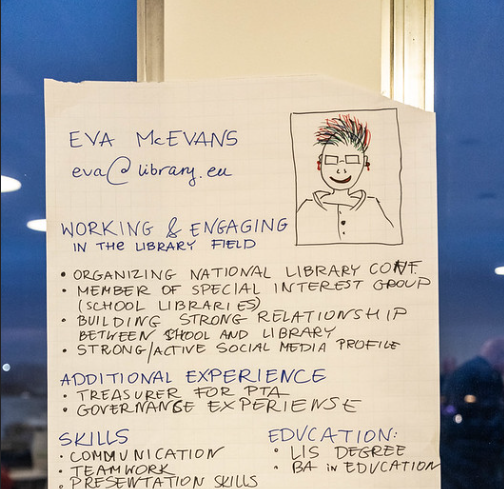 EVA McEVANS
eva@library.eu
WORKING & ENGAGING
IN THE LIBRARY FIELD
• ORGANIZING NATIONAL LIBRARY CONF.
• MEMBER OF SPECIAL INTEREST GROUP
(SCHOOL LIBRARIES)
• BUILDING STRONG RELATIONSHIP
BETWEEN SCHOOL AND LIBRARY
• STRONG/ACTIVE SOCIAL MEDIA PROFILE
ADDITIONAL EXPERIENCE
• TREASURER FOR PTA
• GOVERNANSE EXPERIENSE
SKILLS
• COMMUNICATION
• TEAMWORK
• PRESEWTATION SKILLS
EDUCATION:
• LIS DEGREE
• BA in EDUCATION